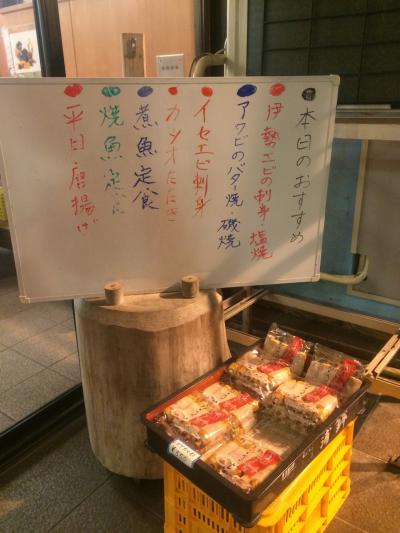 本日のおすすめ
伊勢エビの刺身・塩焼
アワビのバター焼・磯焼
イセエビ刺身
カツオたたき
煮魚定食
焼魚定食
平日唐揚げ